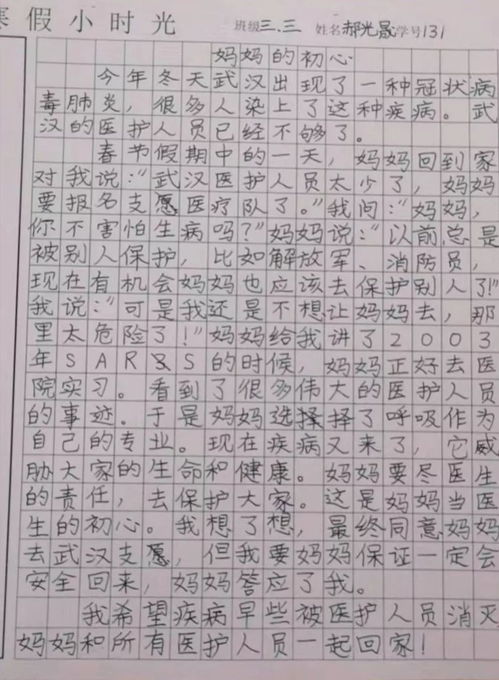 寒假小时光 班级三.三 姓名郝光晟学号131
妈妈的初心
今年冬天武汉出现了一种冠状病
毒肺炎，很多人染上了这种疾病。武
汉的医护人员已经不够了。
春节假期中的一天，妈妈回到家
对我说：“武汉医护人员太少了，妈妈
要报名支愿医疗队了。”我问：“妈妈，
你不害怕生病吗？”妈妈说：“以前总是
被别人保护，比如解放军、消防员，
现在有机会妈妈也应该去保护别人了！”
我说：“可是我还是不想让妈妈去，那
里太危险了！”妈妈给我讲了2003
年SARS的时候，妈妈正好去医
院实习。看到了很多伟大的医护人员
的事迹。于是妈妈选择了呼吸作为
自己的专业。现在疾病又来了，它威
胁大家的生命和健康。妈妈要尽医生
的责任，去保护大家。这是妈妈当医
生的初心。我想了想，最终同意妈妈
去武汉支愿，但我要妈妈保证一定会
安全回来，妈妈答应了我。
我希望疾病早些被医护人员消灭
妈妈和所有医护人员一起回家！